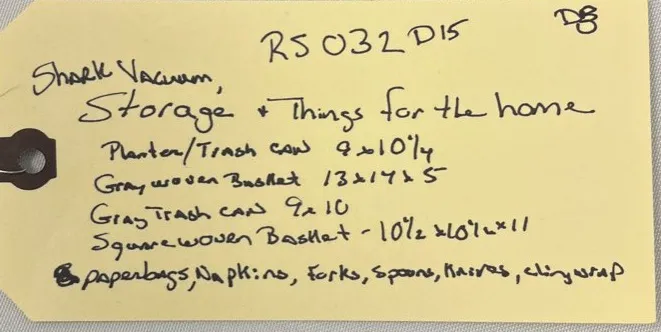 RS032D15
Shark Vacuum,
Storage + Things for the home
Planter/Trash can 9x10 1/4
Gray woven Basket 13x17x5
Gray Trash can 9x10
Square woven Basket - 10 1/2 x 10 1/2 x 11
paperbags, Napkins, Forks, Spoons, Knives, cling wrap